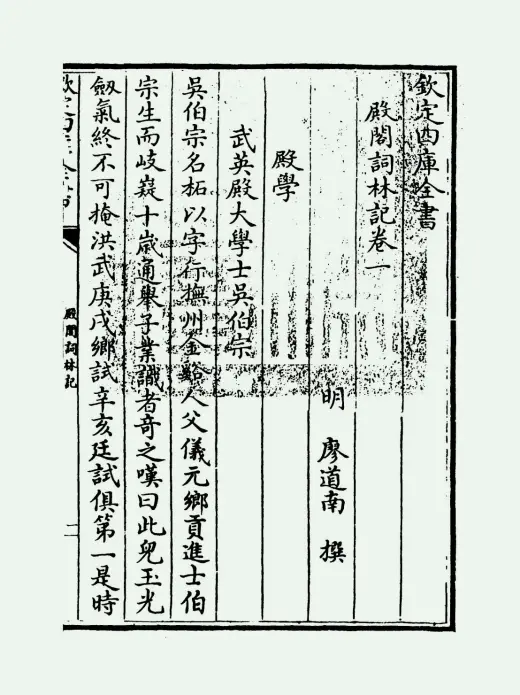 欽定四庫全書
殿閣詞林記卷一
明 廖道南 撰
殿學
武英殿大學士吳伯宗
吳伯宗名祏以字行撫州金谿人父儀元鄉貢進士伯
宗生而岐嶷十歲通舉子業識者奇之嘆曰此兒玉光
劔氣終不可掩洪武庚戌鄉試辛亥廷試俱第一是時
殿閣詞林記